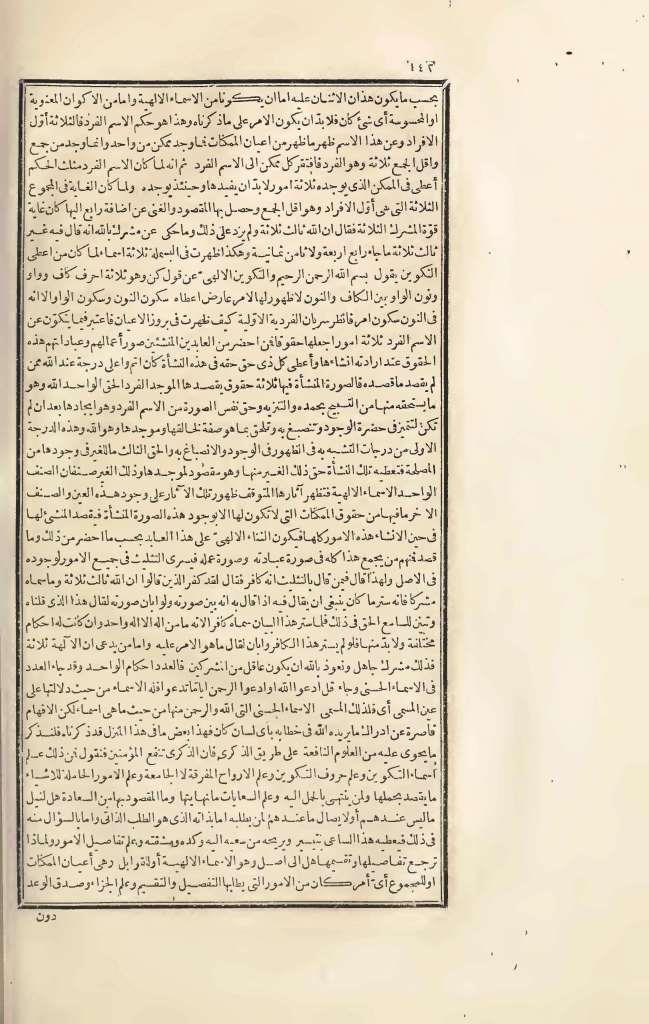 ١٤٣
بحسب ما يكون هذان الاثنان عليه اما ان يكونا من الاسماء الالهية واما من الاكوان المعنوية
او المحسوسة أى شئ كان فلابد أن يكون الامر على ما ذكرناه وهذا هو حكم الاسم الفرد فالثلاثة أوّل
الافراد وعن هذا الاسم ظهر ما ظهر من اعيان الممكنات فما وجد ممكن من واحد وانما وجد من جمع
واقل الجمع ثلاثة وهو الفرد فافتقر كل ممكن الى الاسم الفرد ثم انه لما كان الاسم الفرد مثلث الحكم
أعطى فى الممكن الذى يوجده ثلاثة امور لابد ان يفيدها وحينئذ يوجده ولما كان الغاية فى المجموع
الثلاثة التى هى أوّل الافراد وهو اقل الجمع وحصل بها المقصود والغنى عن اضافة رابع اليها كان غاية
قوّة المشرك الثلاثة فقال ان الله ثالث ثلاثة ولم يزد على ذلك وما حكى عن مشرك بالله انه قال فيه غير
ثالث ثلاثة ما جاء رابع اربعة ولا ثامن ثمانية وهكذا ظهرت فى البسملة ثلاثة اسماء لما كان من اعطى
التكوين يقول بسم الله الرحمن الرحيم والتكوين الالهىّ عن قول كن وهو ثلاثة احرف كاف وواو
ونون الواو بين الكاف والنون لا ظهور لها لامر عارض اعطاه سكون النون وسكون الواو الا انه
فى النون سكون امر فانظر سريان الفردية الاوّلية كيف ظهرت فى بروز الاعيان فاعتبر فيما يتكوّن عن
الاسم الفرد ثلاثة امور اجعلها حقوقا فمن احضر من العابدين المنشئين صور أعمالهم وعباداتهم هذه
الحقوق عند ارادته انشاءها وأعطى كل ذى حق حقه فى هذه النشأة كان اتم واعلى درجة عند الله ممن
لم يقصد ما قصده فالصورة المنشأة فيها ثلاثة حقوق يقصدها الموجد الفرد الحق الواحد لله وهو
ما يستحقه منها من التسبيح بحمده والتنزيه وحق نفس الصورة من الاسم الفرد وهو ايجادها بعد ان لم
تكن لتتميز فى حضرة الوجود وتنصبغ به وتلحق بما هو صفة لخالقها وموجدها وهو الله وهذه الدرجة
الاولى من درجات التشبه به فى الظهور فى الوجود والانصباغ به والحق الثالث ما للغير فى وجودها من
المصلحة فتعطيه تلك النشأة حق ذلك الغير منها وهو مقصود لموجدها وذلك الغير صنفان الصنف
الواحد الاسماء الالهية فتظهر آثارها المتوقف ظهور تلك الآثار على وجود هذه العين والصنف
الآخر ما فيها من حقوق الممكنات التى لا تكون لها الا بوجود هذه الصورة المنشأة فيقصد المنشئ لها
فى حين الانشاء هذه الامور كلها فيكون الثناء الالهىّ على هذا العابد بحسب ما احضر من ذلك وما
قصد فمنهم من يجمع هذا كله فى صورة عبادته وصورة عمله فيسرى التثليث فى جميع الامور لوجوده
فى الاصل ولهذا قال فيمن قال بالتثليث انه كافر فقال لقد كفر الذين قالوا ان الله ثالث ثلاثة وما سماه
مشركا فانه ستر ما كان ينبغى ان يقال فيه اذا قال به انه بين صورته ولو ابان صورته لقال هذا الذى قلناه
وتبين للسامع الحق فى ذلك فلما ستر هذا البيان سماه كافرا لانه ما من اله الا اله واحد وان كانت له احكام
مختلفة ولابد منها فلو لم يستر هذا الكافر وابان لقال ما هو الامر عليه واما من يدعى ان الآلهة ثلاثة
فذلك مشرك جاهل ونعوذ بالله ان يكون عاقل من المشركين فالعدد احكام الواحد وقد جاء العدد
فى الاسماء الحسنى وجاء قل ادعوا الله او ادعوا الرحمن اياما تدعوا فله الاسماء من حيث دلالتها على
عين المسمى أى فلذلك المسمى الاسماء الحسنى التى الله والرحمن منها من حيث ما هى اسماء لكن الافهام
قاصرة عن ادراك ما يريده الله فى خطابه بأى لسان كان فهذا بعض ما فى هذا المنزل قد ذكرناه فلنذكر
ما يحوى عليه من العلوم النافعة على طريق الذكرى فان الذكرى تنفع المؤمنين فنقول فمن ذلك علم
أسماء التكوين وعلم حروف التكوين وعلم الارواح المفرقة لا الجامعة وعلم الامور الحاملة للاشياء
ما يقصد بحملها ولمن ينتهى بالحمل اليه وعلم السعايات ما نهايتها وما المقصود بها من السعادة هل لنيل
ما ليس عندهم أو لايصال ما عندهم لمن يطلبه اما بذاته الذى هو الطلب الذاتى واما بالسؤال منه
فى ذلك فيعطيه هذا الساعى بتيسير ويريحه من سعيه اليه وكده ومشقته وعلم تفاصيل الامور ولماذا
ترجع تفاصيلها وتقسيمها هل الى اصل وهو الاسماء الالهية أو لقوابل وهى أعيان الممكنات
او للمجموع أى أمر كان من الامور التى يطلبها التفصيل والتقسيم وعلم الجزاء وصدق الوعد
دون